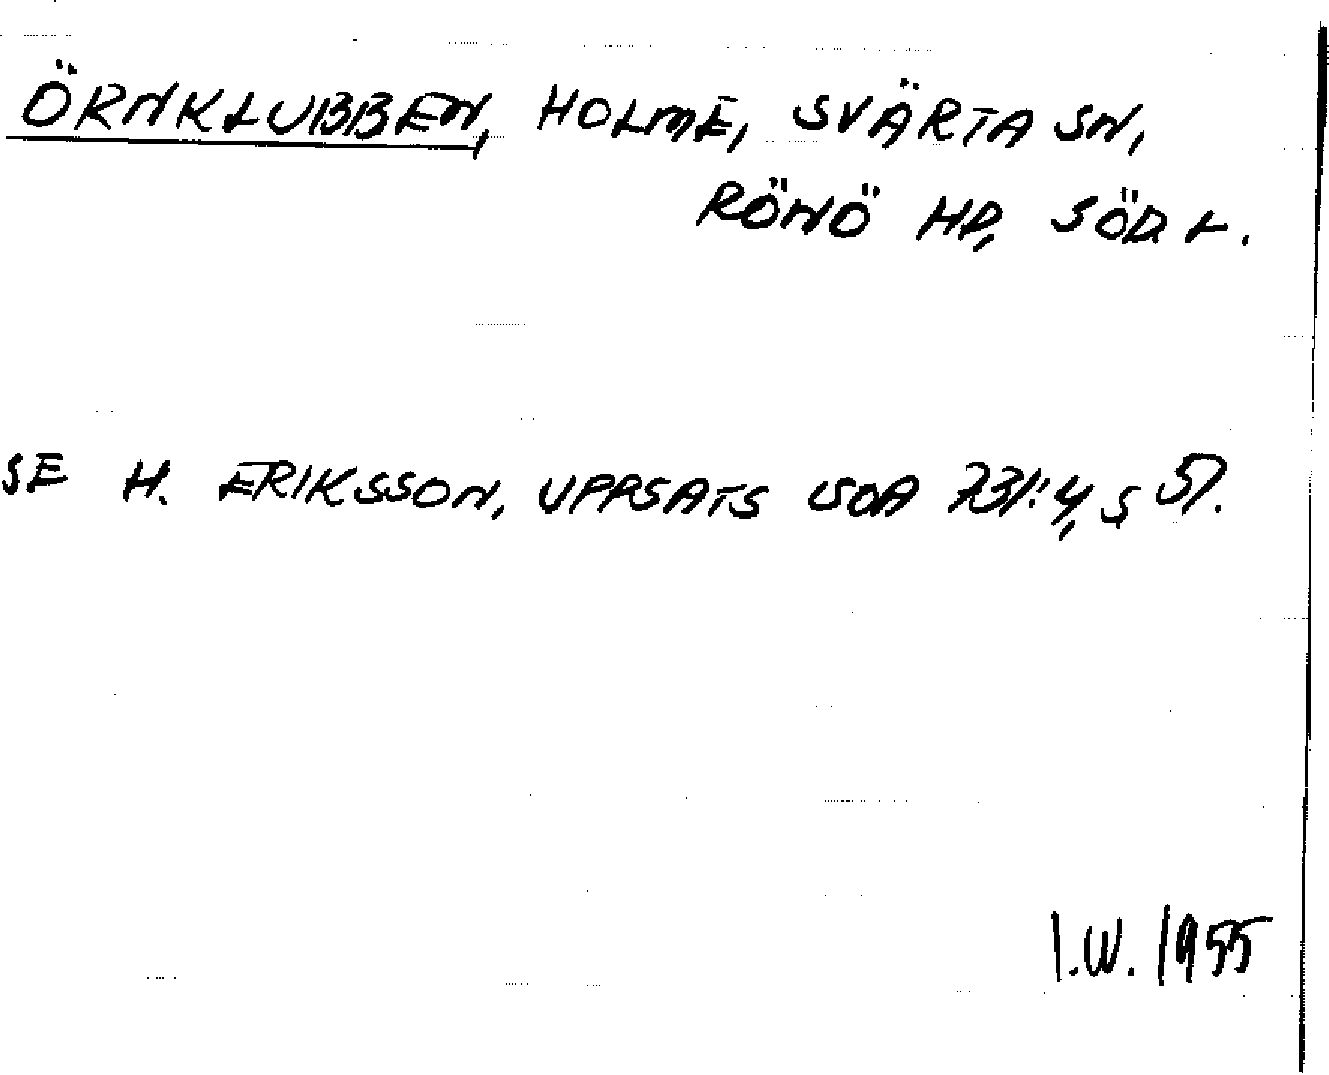 ÖRNKLUBBEN, HOLME, SVÄRTA SN,
RÖNÖ HD, SÖD L.
SE H. ERIKSSON, UPPSATS I SOA 731:4, S 51.
I.W. 1955